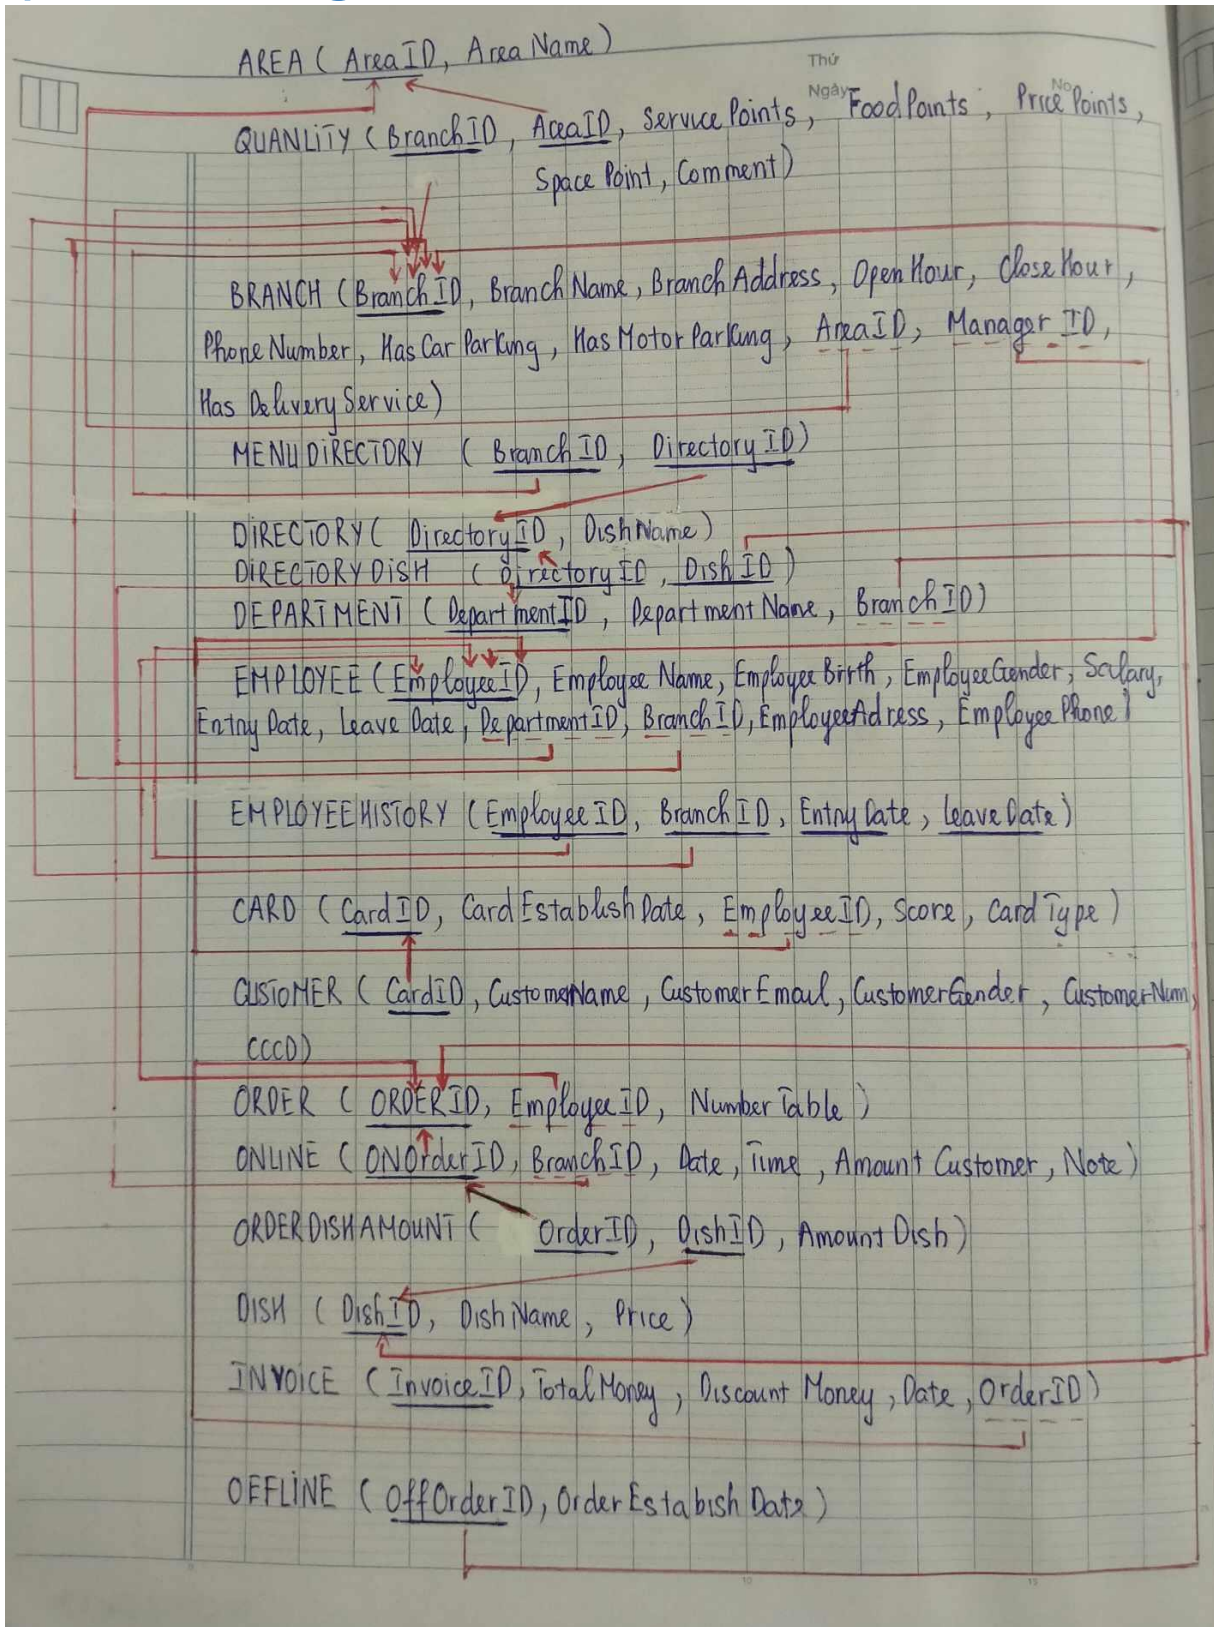 AREA ( AreaID, Area Name )
Thứ
Ngày
No.
QUANLITY ( BranchID, AreaID, Service Points, Food Points, Price Points,
Space Point, Comment)
BRANCH (BranchID, Branch Name, Branch Address, Open Hour, Close Hour,
Phone Number, Has Car Parking, Has Motor Parking, AreaID, Manager ID,
Has Delivery Service)
MENUDIRECTORY ( Branch ID, Directory ID)
DIRECTORY ( DirectoryID, DishName)
DIRECTORYDISH ( DirectoryID, DishID )
DEPARTMENT ( DepartmentID, Department Name, BranchID)
EMPLOYEE ( EmployeeID, Employee Name, Employee Birth, EmployeeGender, Salary,
Entry Date, Leave Date, DepartmentID, BranchID, EmployeeAdress, Employee Phone)
EMPLOYEEHISTORY (Employee ID, BranchID, Entry Date, Leave Date)
CARD ( CardID, Card Establish Date, EmployeeID, Score, Card Type )
CUSTOMER ( CardID, CustomerName, Customer Email, CustomerGender, CustomerNum,
CCCD)
ORDER ( ORDERID, EmployeeID, Number Table )
ONLINE ( ONOrderID, BranchID, Date, Time, Amount Customer, Note)
ORDERDISHAMOUNT ( OrderID, DishID, Amount Dish)
DISH ( DishID, Dish Name, Price)
INVOICE ( InvoiceID, Total Money, Discount Money, Date, OrderID)
OFFLINE ( OffOrderID, Order Estabish Date)
10
15